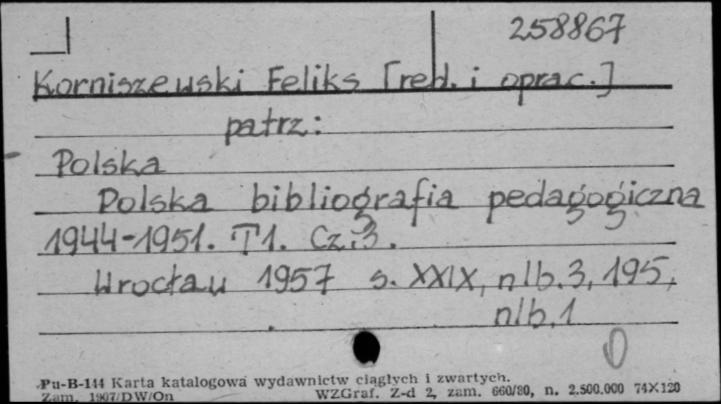 258867
Korniszewski Feliks [red. i oprac.]
patrz:
Polska
Polska bibliografia pedagogiczna
1944-1951. T1. Cz. 3.
Wrocław 1957 s. XXIX, nlb. 3, 195,
nlb. 1
Pu-B-144 Karta katalogowa wydawnictw ciągłych i zwartych.
Zam. 1907/DW/On WZGraf. Z-d 2, zam. 660/80, n. 2.500.000 74×120